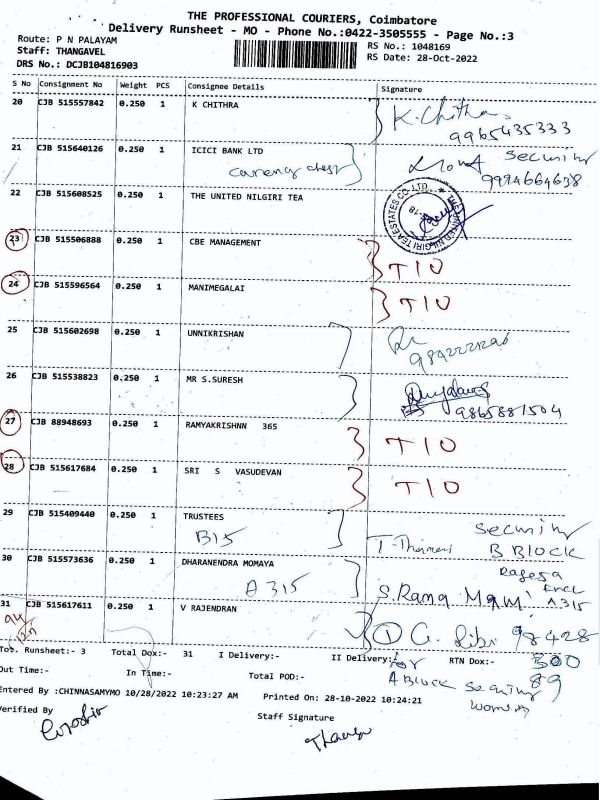 THE PROFESSIONAL COURIERS, Coimbatore
Delivery Runsheet - MO - Phone No.:0422-3505555 - Page No.:3
Route: P N PALAYAM
RS No.: 1048169
Staff: THANGAVEL
RS Date: 28-Oct-2022
DRS No.: DCJB104816903
S No Consignment No Weight PCS Consignee Details Signature
20 CJB 515557842 0.250 1 K CHITHRA K. Chithra
9965435333
21 CJB 515640126 0.250 1 ICICI BANK LTD Security
9994664638
22 CJB 515608525 0.250 1 THE UNITED NILGIRI TEA
THE UNITED NILGIRI TEA ESTATES CO. LTD.
23 CJB 515506888 0.250 1 CBE MANAGEMENT T10
24 CJB 515596564 0.250 1 MANIMEGALAI T10
25 CJB 515602698 0.250 1 UNNIKRISHAN
26 CJB 515538823 0.250 1 MR S.SURESH
9865881504
27 CJB 88948693 0.250 1 RAMYAKRISHNN 365 T10
28 CJB 515617684 0.250 1 SRI S VASUDEVAN T10
29 CJB 515409440 0.250 1 TRUSTEES Security
B15 B BLOCK
30 CJB 515573636 0.250 1 DHARANENDRA MOMAYA
A 315 S. Rama Mani A315
31 CJB 515617611 0.250 1 V RAJENDRAN 98428
Tot. Runsheet:- 3 Total Dox:- 31 I Delivery:- II Delivery:- RTN Dox:- 300
for
Out Time:- In Time:- Total POD:- A BLOCK 89
Entered By :CHINNASAMYMO 10/28/2022 10:23:27 AM Printed On: 28-10-2022 10:24:21
Verified By Staff Signature